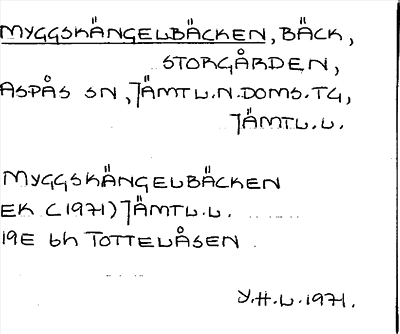 MYGGSKÄNGELBÄCKEN, BÄCK,
STORGÅRDEN,
ASPÅS SN, JÄMTL.N.DOMS.TG,
JÄMTL.L.
MYGGSKÄNGELBÄCKEN
EK (1971) JÄMTL.L.
19E 6h TOTTELÅSEN
Y.H.L.1971.